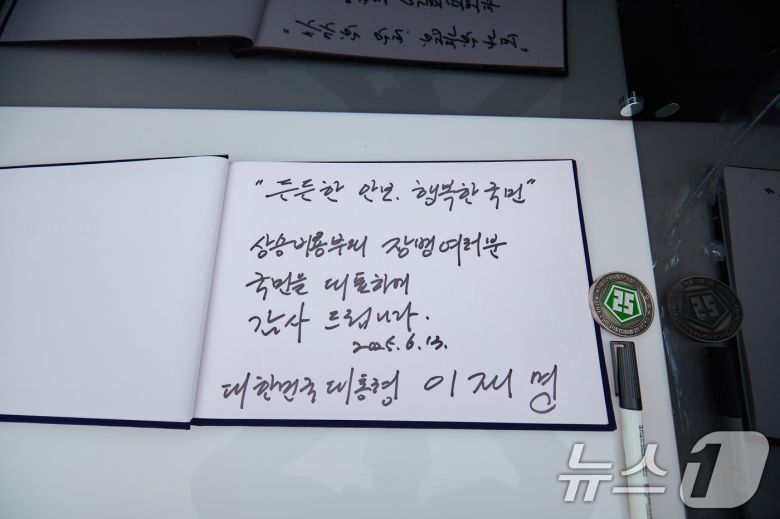 "든든한 안보, 행복한 국민"
상승비룡부대 장병여러분
국민을 대표하여
감사 드립니다.
2025. 6. 13.
대한민국 대통령 이재명
25
뉴스1